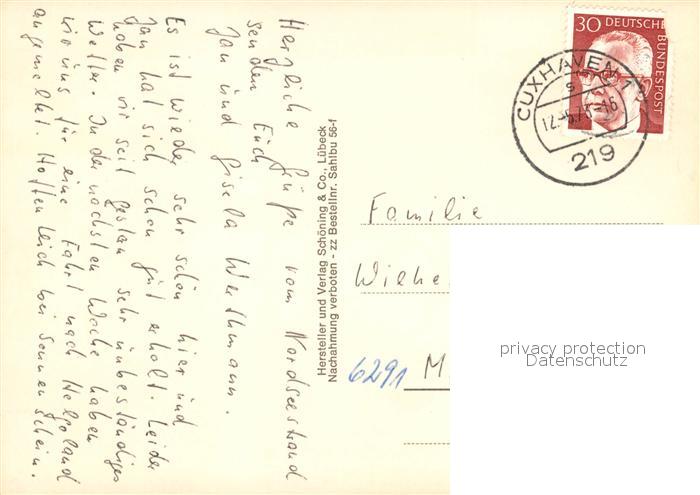 Herzliche Grüße vom Nordseestrand
senden Euch
Jan und Gisela Werthmann.
Es ist wieder sehr schön hier und
Jan hat sich schon gut erholt. Leider
haben wir seit gestern sehr unbeständiges
Wetter. In der nächsten Woche haben
wir uns für eine Fahrt nach Helgoland
angemeldet. Hoffentlich bei Sonnenschein.
Hersteller und Verlag Schöning & Co., Lübeck
Nachahmung verboten - zz Bestellnr. Sahlbu 56-f
30 DEUTSCHE
BUNDESPOST
CUXHAVEN 1
219
Familie
Wilhe
6291 M
privacy protection
Datenschutz